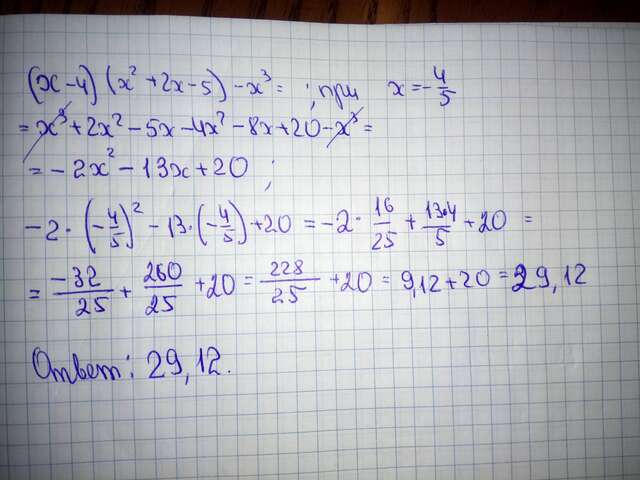 (x-4)(x²+2x-5)-x³= ; при x=-4/5
=x³+2x²-5x-4x²-8x+20-x³=
=-2x²-13x+20;
-2·(-4/5)²-13·(-4/5)+20=-2·16/25+13·4/5+20=
=-32/25+260/25+20=228/25+20=9,12+20=29,12
Ответ: 29,12.